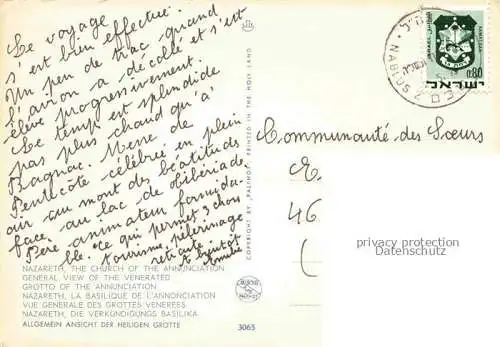 Le voyage
s'est bien effectué.
Un peu de trac quand
l'avion a décollé et s'est
élevé progressivement.
Le temps est splendide
pas plus chaud qu'à
Bagnac. Messe de
Pentecôte célébrée en plein
air au mont des béatitudes
face au lac de Tibériade
Père animateur formida-
ble. Ce qui permet 3 choses
tourisme, pèlerinage
retraite. A bientôt
NAZARETH, THE CHURCH OF THE ANNUNCIATION
GENERAL VIEW OF THE VENERATED
GROTTO OF THE ANNUNCIATION
NAZARETH, LA BASILIQUE DE L'ANNONCIATION
VUE GENERALE DES GROTTES VENEREES
NAZARETH, DIE VERKÜNDIGUNGS BASILIKA
ALLGEMEIN ANSICHT DER HEILIGEN GROTTE
3065
COPYRIGHT BY "PALPHOT" PRINTED IN THE HOLY LAND
NABLUS
ISRAEL
0.80
ישראל
Communauté des Sœurs
46
privacy protection
Datenschutz